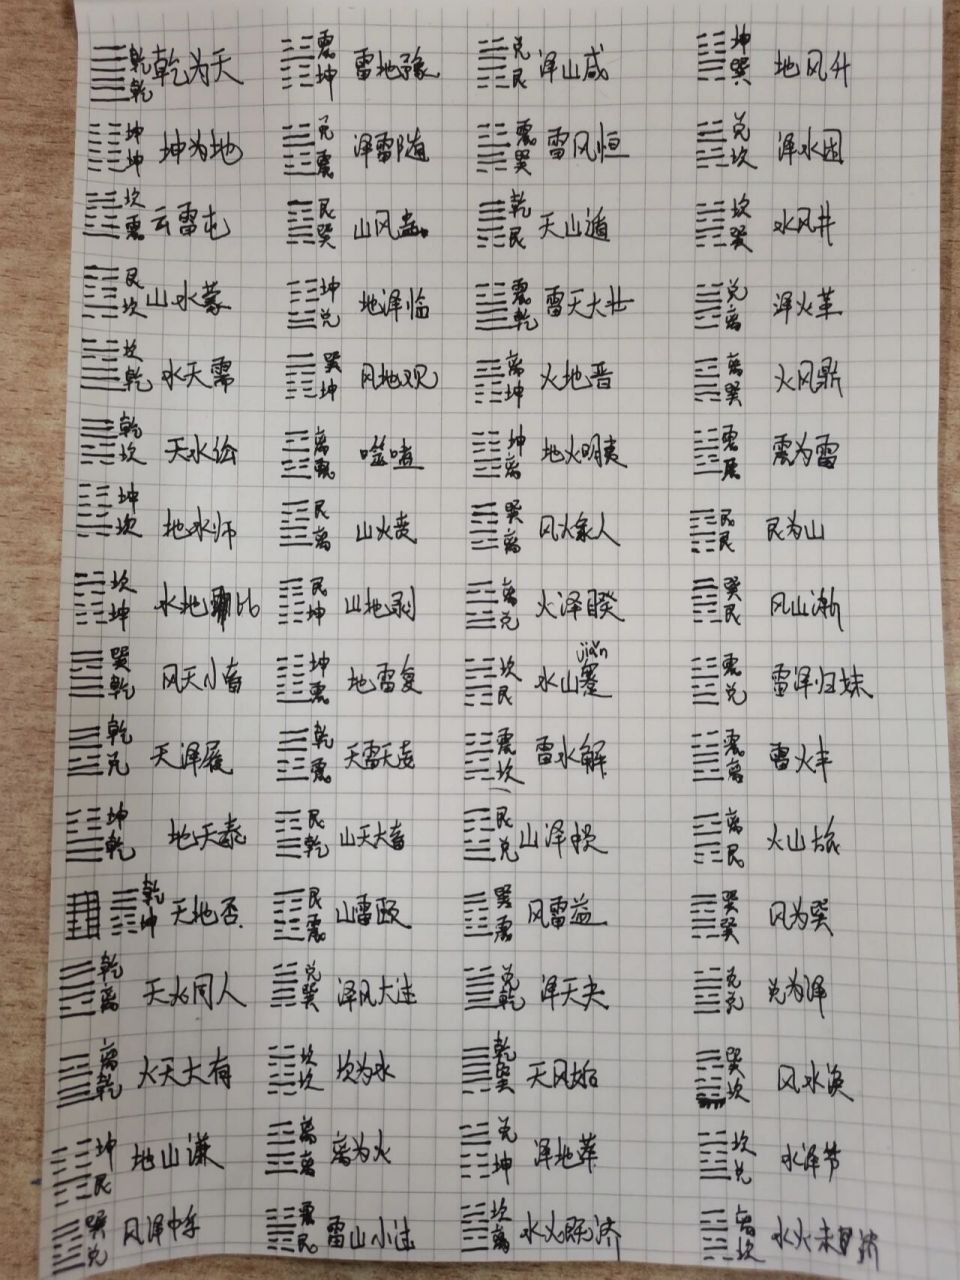 乾 乾 乾为天
坤 坤 坤为地
坎 震 云雷屯
艮 坎 山水蒙
坎 乾 水天需
乾 坎 天水讼
坤 坎 地水师
坎 坤 水地比
巽 乾 风天小畜
乾 兑 天泽履
坤 乾 地天泰
乾 坤 天地否
乾 离 天火同人
离 乾 火天大有
坤 艮 地山谦
巽 兑 风泽中孚
震 坤 雷地豫
兑 震 泽雷随
艮 巽 山风蛊
坤 兑 地泽临
巽 坤 风地观
离 震 噬嗑
艮 离 山火贲
艮 坤 山地剥
坤 震 地雷复
乾 震 天雷无妄
艮 乾 山天大畜
艮 震 山雷颐
兑 巽 泽风大过
坎 坎 坎为水
离 离 离为火
震 艮 雷山小过
兑 艮 泽山咸
震 巽 雷风恒
乾 艮 天山遁
震 乾 雷天大壮
离 坤 火地晋
坤 离 地火明夷
巽 离 风火家人
离 兑 火泽睽
坎 艮 水山蹇 jiǎn
震 坎 雷水解
艮 兑 山泽损
巽 震 风雷益
兑 乾 泽天夬
乾 巽 天风姤
兑 坤 泽地萃
坎 离 水火既济
坤 巽 地风升
兑 坎 泽水困
坎 巽 水风井
兑 离 泽火革
离 巽 火风鼎
震 震 震为雷
艮 艮 艮为山
巽 艮 风山渐
震 兑 雷泽归妹
震 离 雷火丰
离 艮 火山旅
巽 巽 风为巽
兑 兑 兑为泽
巽 坎 风水涣
坎 兑 水泽节
离 坎 水火未济